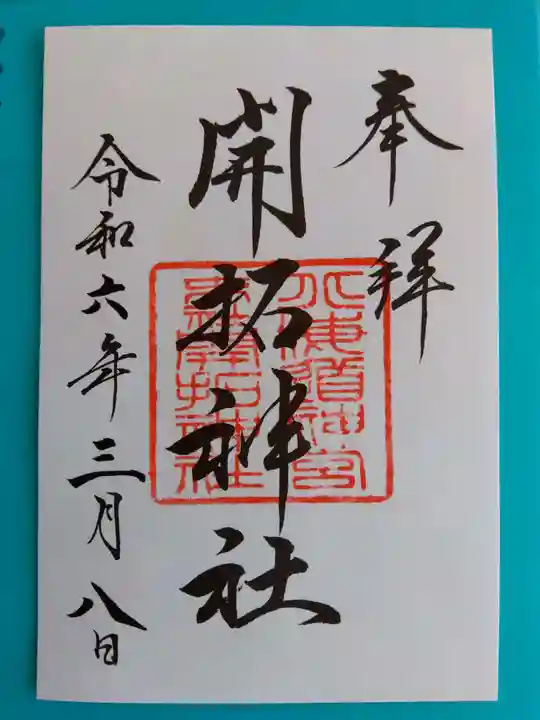 奉拝
開拓神社
北海道神宮
末社開拓神社
令和六年三月八日